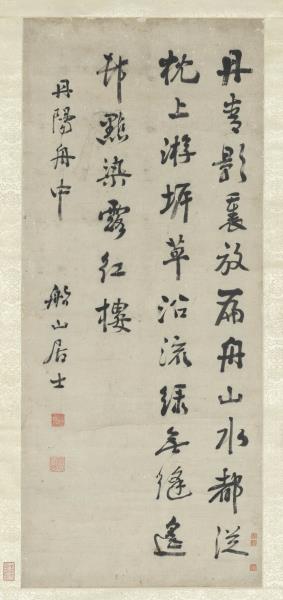 丹青影裏放扁舟山水都從
枕上游坼草沿流綠無縫遙
邨點染露紅樓
丹陽舟中
船山居士